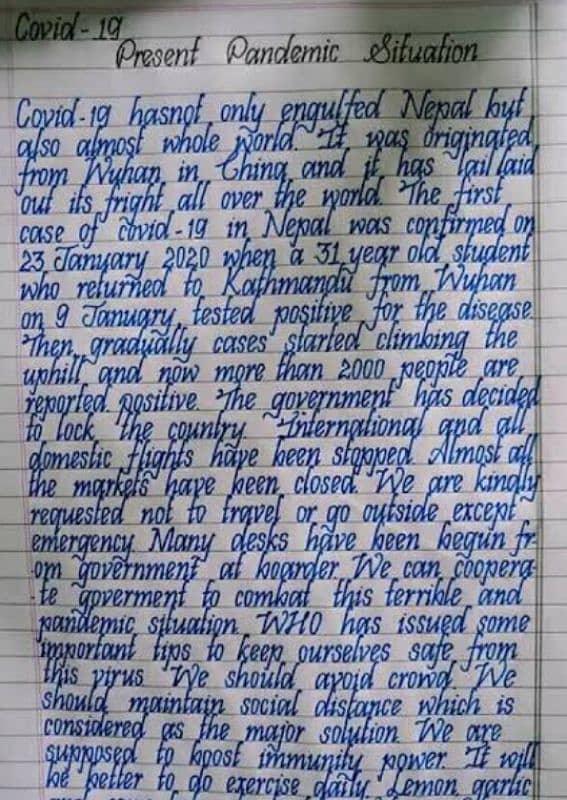 Covid-19
Present Pandemic Situation
Covid-19 hasnot only engulfed Nepal but
also almost whole world. It was originated
from Wuhan in China and it has lail laid
out its fright all over the world. The first
case of covid-19 in Nepal was confirmed on
23 January 2020 when a 31 year old student
who returned to Kathmandu from Wuhan
on 9 January, tested positive for the disease.
Then, gradually cases started climbing the
uphill and now more than 2000 people are
reported positive. The government has decided
to lock the country. International and all
domestic flights have been stopped. Almost all
the markets have been closed. We are kindly
requested not to travel or go outside except
emergency. Many desks have been begun fr-
-om government at boarder. We can coopera-
-te goverment to combat this terrible and
pandemic situation. WHO has issued some
important tips to keep ourselves safe from
this virus. We should avoid crowd. We
should maintain social distance which is
considered as the major solution. We are
supposed to boost immunity power. It will
be better to do exercise daily. Lemon, garlic